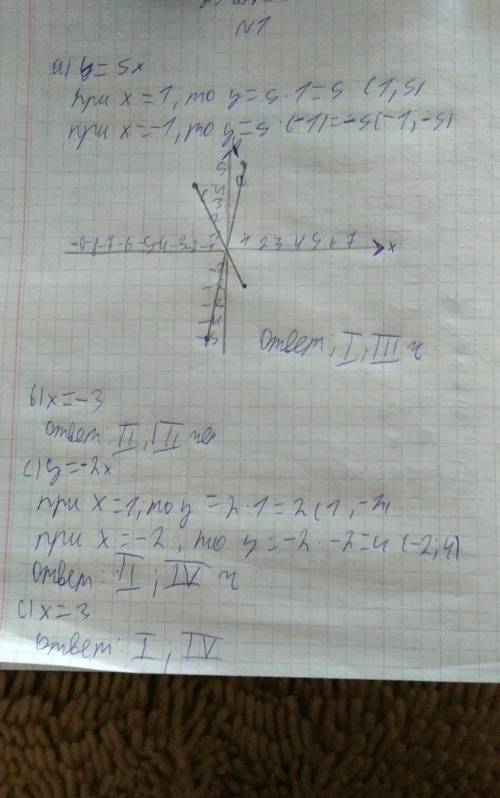 N1
a) y=5x
при x=1, то y=5·1=5 (1,5)
при x=-1, то y=5·(-1)=-5(-1,-5)
5
4
3
2
1 2 3 4 5 6 7 x
ответ: I, III ч
b) x=-3
ответ: II, III чет
c) y=-2x
при x=1, то y=-2·1=2(1,-2)
при x=-2, то y=-2·-2=4(-2;4)
ответ: II, IV ч
c) x=3
ответ: I, IV